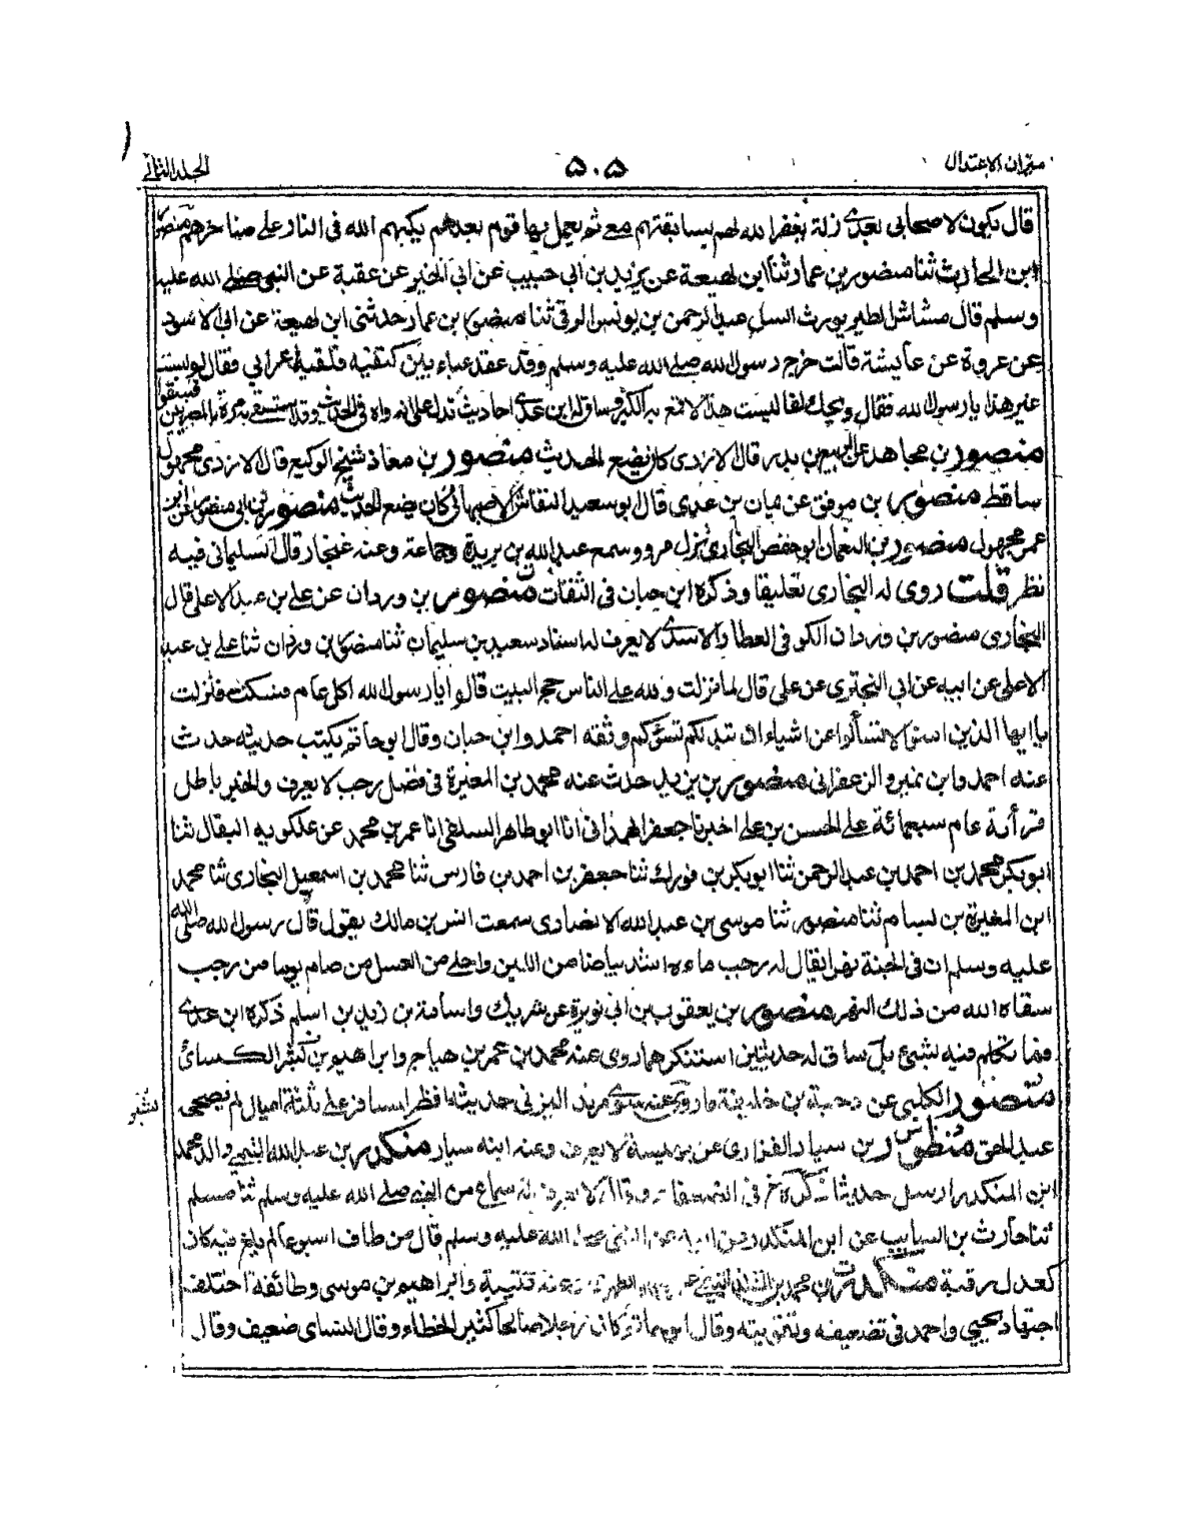 ميزان الاعتدال
۵۰۵
الجلد الثانى
قال يكون لاصحابى بعدى زلة يغفر الله لهم بسابقتهم معى ثم يعمل بها قوم بعدهم يكبهم الله فى النار على مناخرهم منصور
ابن الحارث ثنا منصور بن عمار ثنا ابن لهيعة عن يزيد بن ابى حبيب عن ابى الخير عن عقبة عن النبى صلى الله عليه
وسلم قال مشاش الطير يورث السل عبد الرحمن بن يونس الرقى ثنا منصور بن عمار حدثنى ابن لهيعة عن ابى الاسود
عن عروة عن عايشة قالت خرج رسول الله صلى الله عليه وسلم وقد عقد عباء بين كتفيه فلقيه اعرابى فقال لو لبست
غير هذا يا رسول الله فقال ويحك انما لبست هذا لاقمع به الكبر وساق له ابن عدى احاديث تدل على انه واه فى الحديث
منصور بن مجاهد عن الربيع بن بدر قال الازدى كان يضع الحديث منصور بن معاذ شيخ الوكيع قال الازدى مجهول
ساقط منصور بن موفق عن يمان بن عدى قال ابو سعيد النقاش الاصبهانى كان يضع الحديث منصور بن ابى منصور عن ابن
عمر مجهول منصور بن النعمان ابو حفص البخارى نزل مرو وسمع عبد الله بن بريدة وجماعة وعنه غنجار قال السليمانى فيه
نظر قلت روى له البخارى تعليقا وذكره ابن حبان فى الثقات منصور بن وردان عن على بن عبد الاعلى قال
البخارى منصور بن وردان الكوفى العطار الاسدى لا يعرف له اسناد سعيد بن سليمان ثنا منصور بن وردان ثنا على بن عبد
الاعلى عن ابيه عن ابى البخترى عن على قال لما نزلت ولله على الناس حج البيت قالوا يا رسول الله اكل عام فسكت فنزلت
يا ايها الذين امنوا لا تسألوا عن اشياء ان تبد لكم تسؤكم وثقه احمد وابن حبان وقال ابو حاتم يكتب حديثه حدث
عنه احمد وابن نمير والزعفرانى منصور بن يزيد حدث عنه محمد بن المغيرة فى فضل رجب لا يعرف والخبر باطل
قرأنه عام سبعمائة على الحسن بن على اخبرنا جعفر الهمذانى انا ابو طاهر السلفى انا عمر بن محمد عن علكويه البقال ثنا
ابو بكر محمد بن احمد بن عبد الرحمن ثنا ابو بكر بن فورك ثنا جعفر بن احمد بن فارس ثنا محمد بن اسمعيل البخارى ثنا محمد
ابن المغيرة بن بسام ثنا منصور ثنا موسى بن عبد الله الانصارى سمعت انس بن مالك يقول قال رسول الله صلى الله
عليه وسلم ان فى الجنة نهرا يقال له رجب ماءه اشد بياضا من اللبن واحلى من العسل من صام يوما من رجب
سقاه الله من ذلك النهر منصور بن يعقوب بن ابى نويرة عن شريك واسامة بن زيد بن اسلم ذكره ابن عدى
فما تكلم فيه بشىء بل ساق له حديثين استنكرهما روى عنه محمد بن عمر بن هياج وابراهيم بن بشر الكسائى
منصور الكلبى عن دحية بن خليفة ما روى عنه سوى مرثد اليزنى حديثه افطر المسافر على ثلثة اميال لم يصححه
عبد الحق منظور بن سيار الفزارى عن بهيسة لا يعرف وعنه ابنه سيار منكدر بن عبد الله التيمى والد محمد
ابن المنكدر ارسل حديثا ذكره خ فى الضعفاء وقال لا يعرف له سماع من النبى صلى الله عليه وسلم ثنا مسلم
ثنا حارث بن السايب عن ابن المنكدر عن ابيه عن النبى صلى الله عليه وسلم قال من طاف اسبوعا لم يلغ فيه كان
كعدل رقبة منكدر بن محمد بن المنكدر التيمى عن وعنه قتيبة وابراهيم بن موسى وطائفة اختلف
اجتهاد يحيى واحمد فى تضعيفه وتقويته وقال ابو حاتم كان رجلا صالحا كثير الخطاء وقال النسائى ضعيف وقال